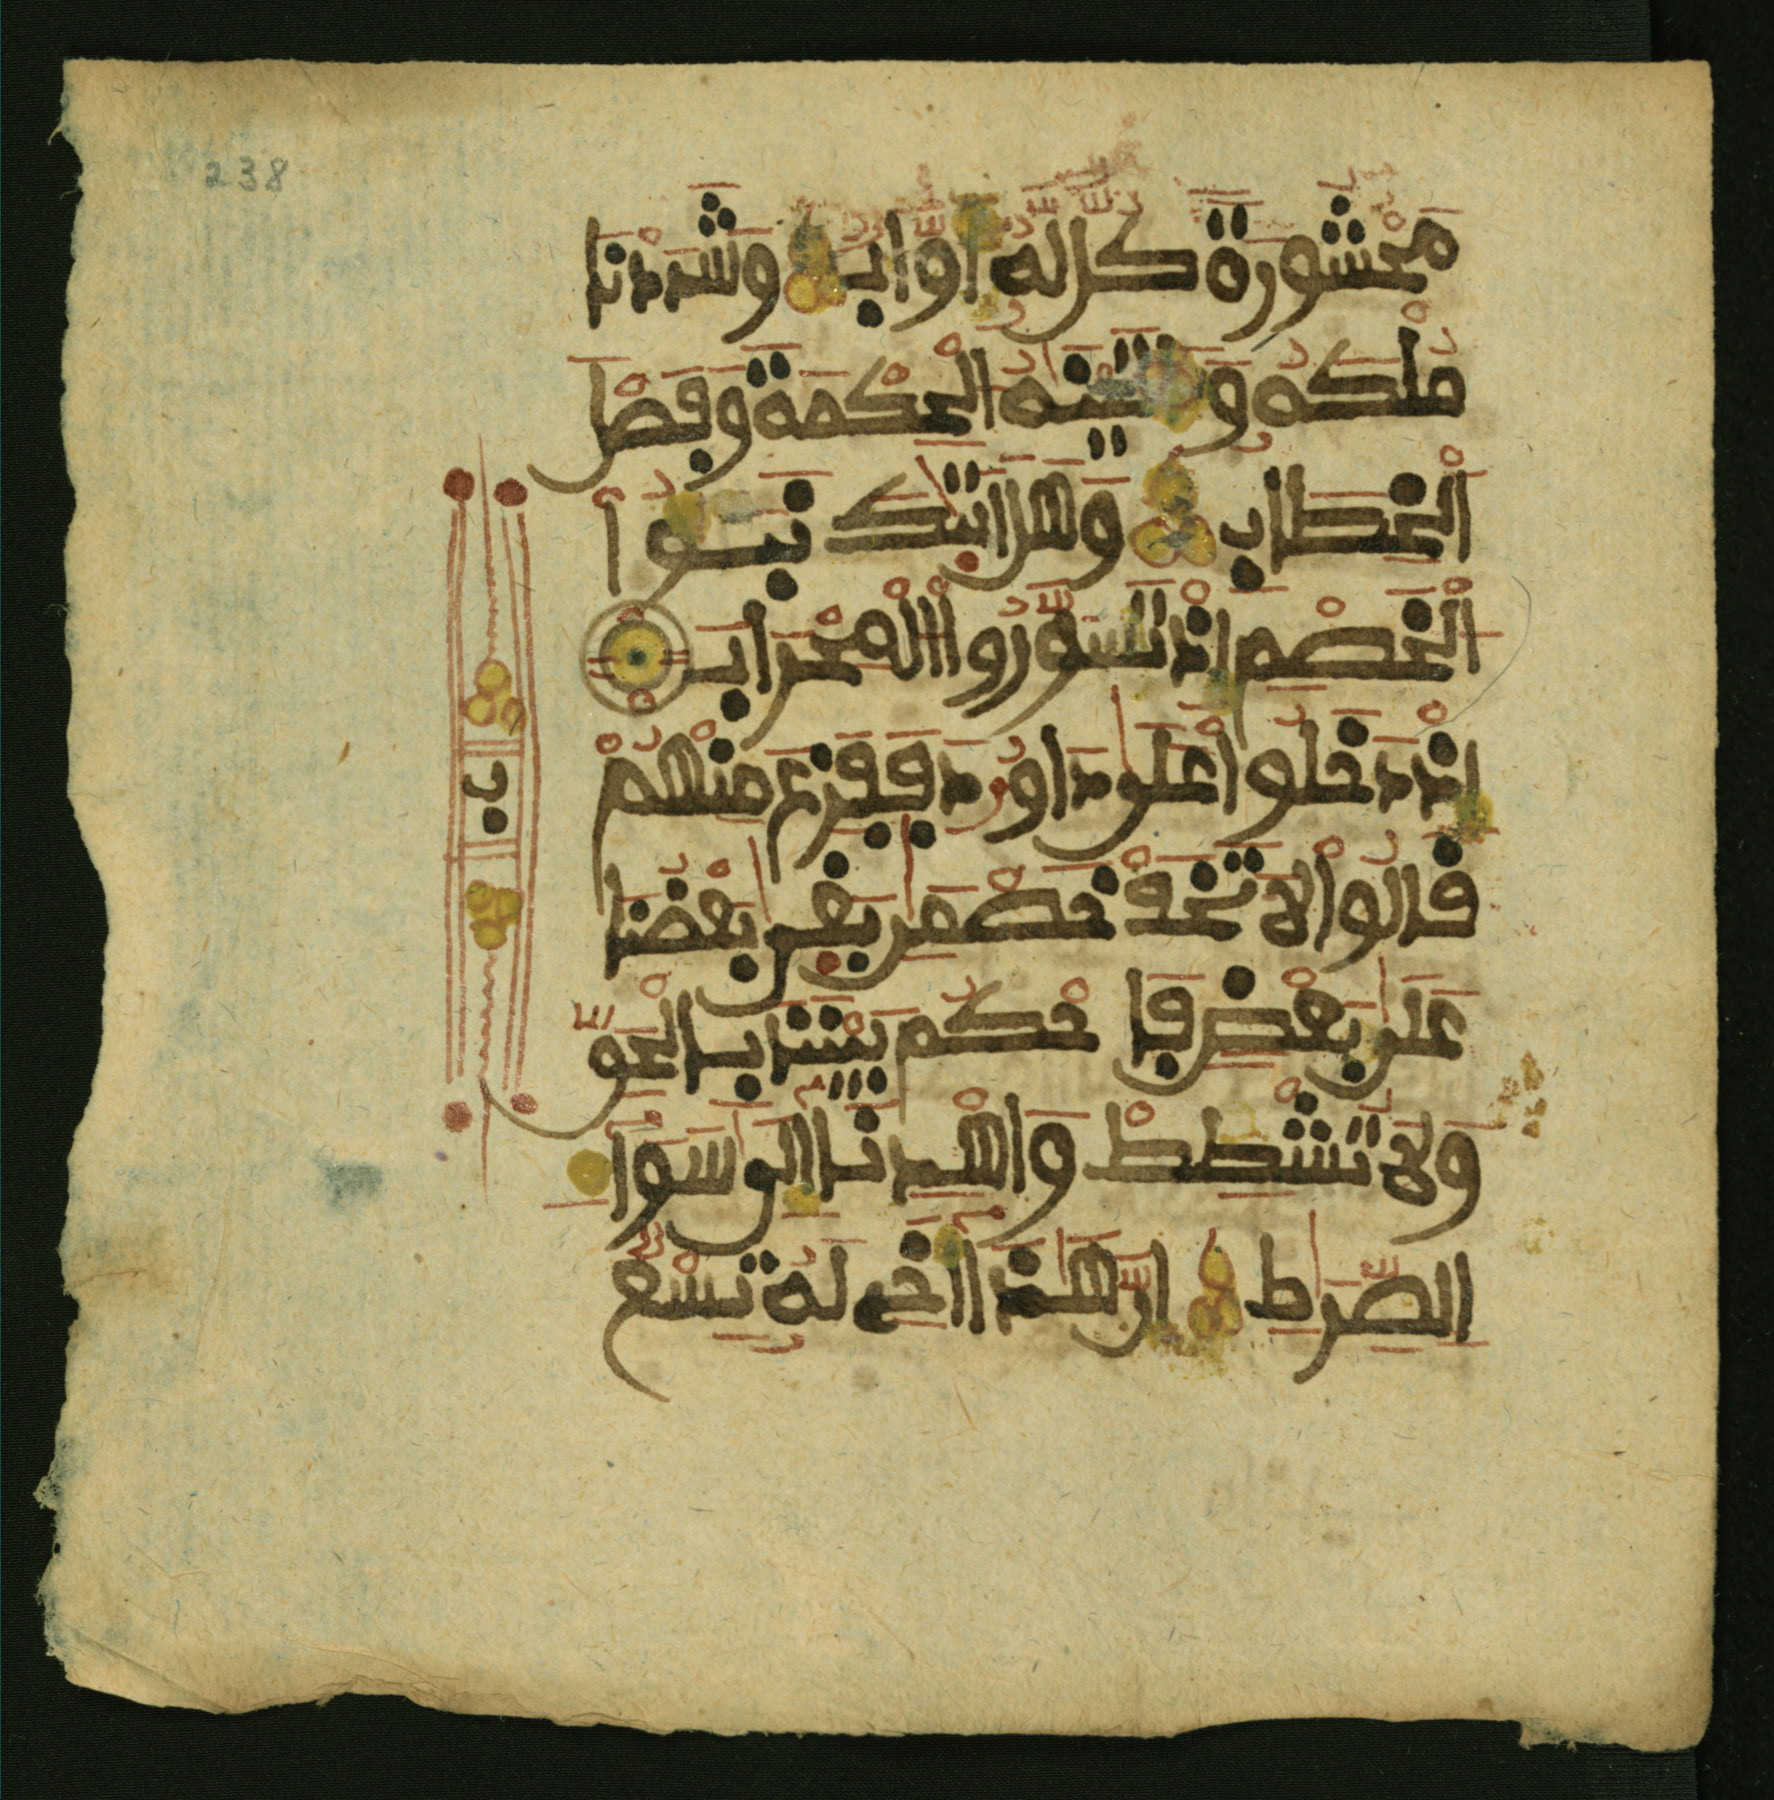 238
مَحْشُورَةً كُلٌّ لَّهُ أَوَّابٌ وَشَدَدْنَا
مُلْكَهُ وَءَاتَيْنَٰهُ الْحِكْمَةَ وَفَصْلَ
اَلْخِطَابِ وَهَلَ اَتَٰكَ نَبَؤُا
اَلْخَصْمِ إِذْ تَسَوَّرُوا اَلْمِحْرَابَ
إِذْ دَخَلُوا عَلَىٰ دَاوُۥدَ فَفَزِعَ مِنْهُمْ
قَالُوا لَا تَخَفْ خَصْمَٰنِ بَغَىٰ بَعْضُنَا
عَلَىٰ بَعْضٍ فَاحْكُم بَيْنَنَا بِالْحَقِّ
ب
وَلَا تُشْطِطْ وَاهْدِنَا إِلَىٰ سَوَآءِ
اِلصِّرَٰطِ إِنَّ هَٰذَا أَخِى لَهُ تِسْعٌ